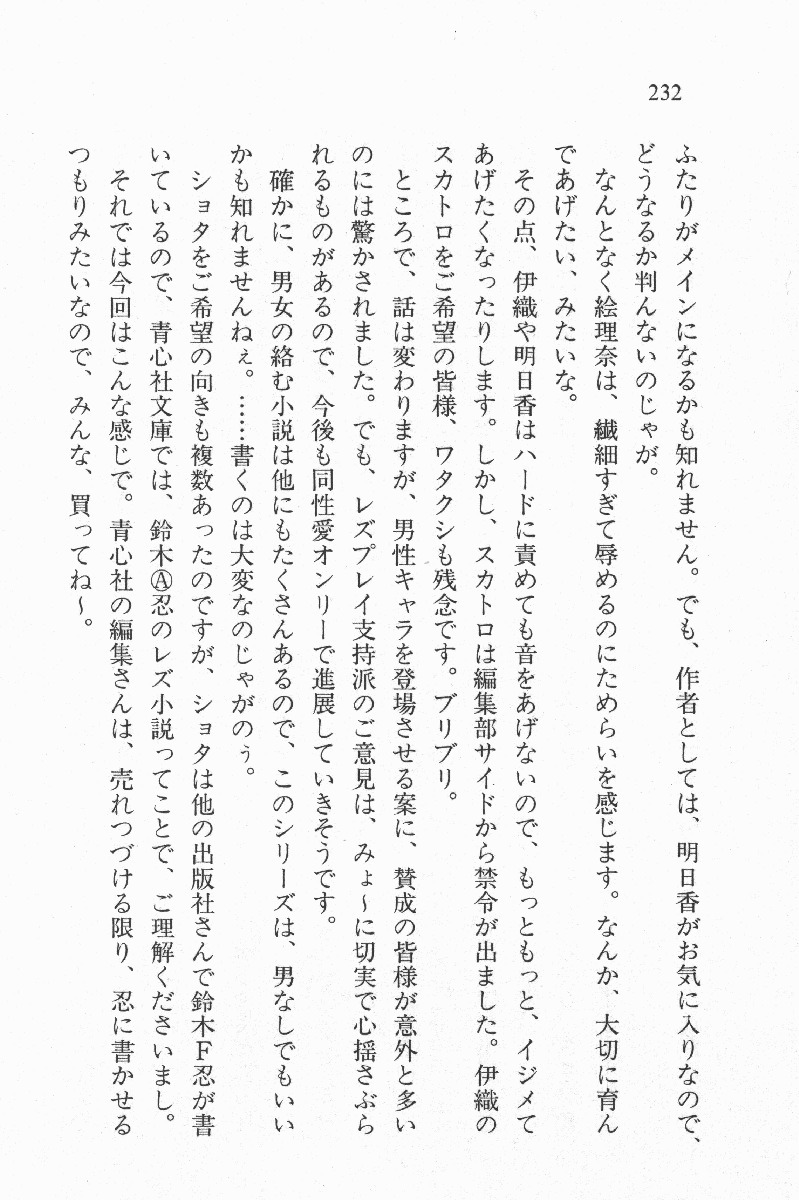 232
ふたりがメインになるかも知れません。でも、作者としては、明日香がお気に入りなので、
どうなるか判んないのじゃが。
なんとなく絵理奈は、繊細すぎて辱めるのにためらいを感じます。なんか、大切に育ん
であげたい、みたいな。
その点、伊織や明日香はハードに責めても音をあげないので、もっともっと、イジメて
あげたくなったりします。しかし、スカトロは編集部サイドから禁令が出ました。伊織の
スカトロをご希望の皆様、ワタクシも残念です。ブリブリ。
ところで、話は変わりますが、男性キャラを登場させる案に、賛成の皆様が意外と多い
のには驚かされました。でも、レズプレイ支持派のご意見は、みょ〜に切実で心揺さぶら
れるものがあるので、今後も同性愛オンリーで進展していきそうです。
確かに、男女の絡む小説は他にもたくさんあるので、このシリーズは、男なしでもいい
かも知れませんねぇ。……書くのは大変なのじゃがのぅ。
ショタをご希望の向きも複数あったのですが、ショタは他の出版社さんで鈴木Ｆ忍が書
いているので、青心社文庫では、鈴木Ⓐ忍のレズ小説ってことで、ご理解くださいまし。
それでは今回はこんな感じで。青心社の編集さんは、売れつづける限り、忍に書かせる
つもりみたいなので、みんな、買ってね〜。